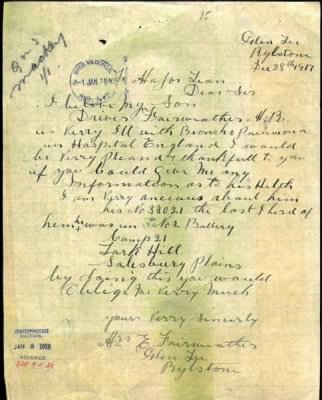 15
Glen Iu
Rylstone
Dec 28th 1917
1 JAN 1918
To Major Lean
Dear Sir
I beleive My Son
Driver Fairweather H.B.
is Verry Ill with Broncho Pneumona
in Hospital England I would
be Verry Pleased & thankfull to you
if you Could Give Me any
Information as to his Helth
I am Verry ancious about him
his No 33021 the last I herd of
hem he was in No 2 Battery
Camp 21
Lark Hill
Salisbury Plains
by doing this you would
Oblige Me Verry Much
yours Verry Sincerly
Mrs E Fairweather
Glen Iu
Rylstone
CORRESPONDENCE
SECTION.
JAN 2 1918
RECEIVED